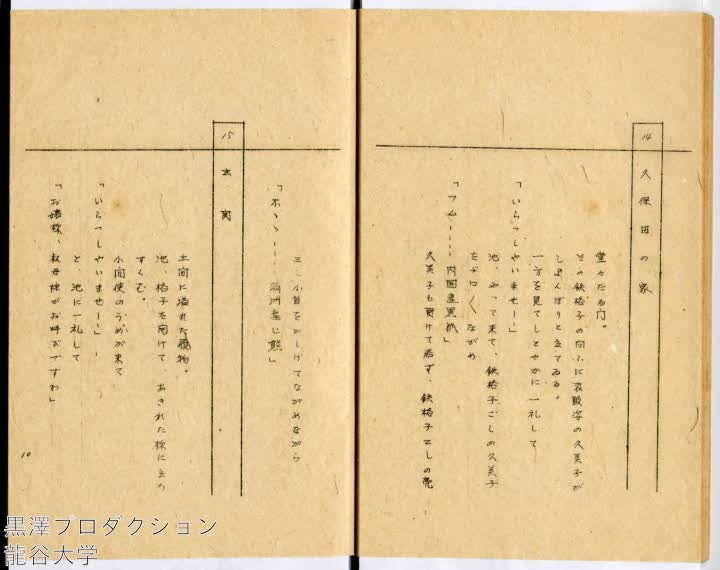 14 久保田の家
堂々たる門。
その鉄格子の向ふに哀願姿の久美子が
しよんぼりと立てゐる。
一方を見てしとやかに一礼して
「いらつしやいませ――」
池、やつて来て、鉄格子ごしの久美子
をヂロ〳〵ながめ
「フム――― 内国産黒狐」
久美子も負けて居ず、鉄格子ごしの
三、小首をかしげてながめながら
「ホヽヽ――― 満洲産じ熊」
15 玄関
土間に溢れた履物。
池、格子を開けて、あきれた様に立ち
すくむ。
小間使のうめが来て
「いらつしやいませ――」
と、池に一礼して
「お嬢様、叔母様がお呼びですわ」
10
黒澤プロダクション
龍谷大学